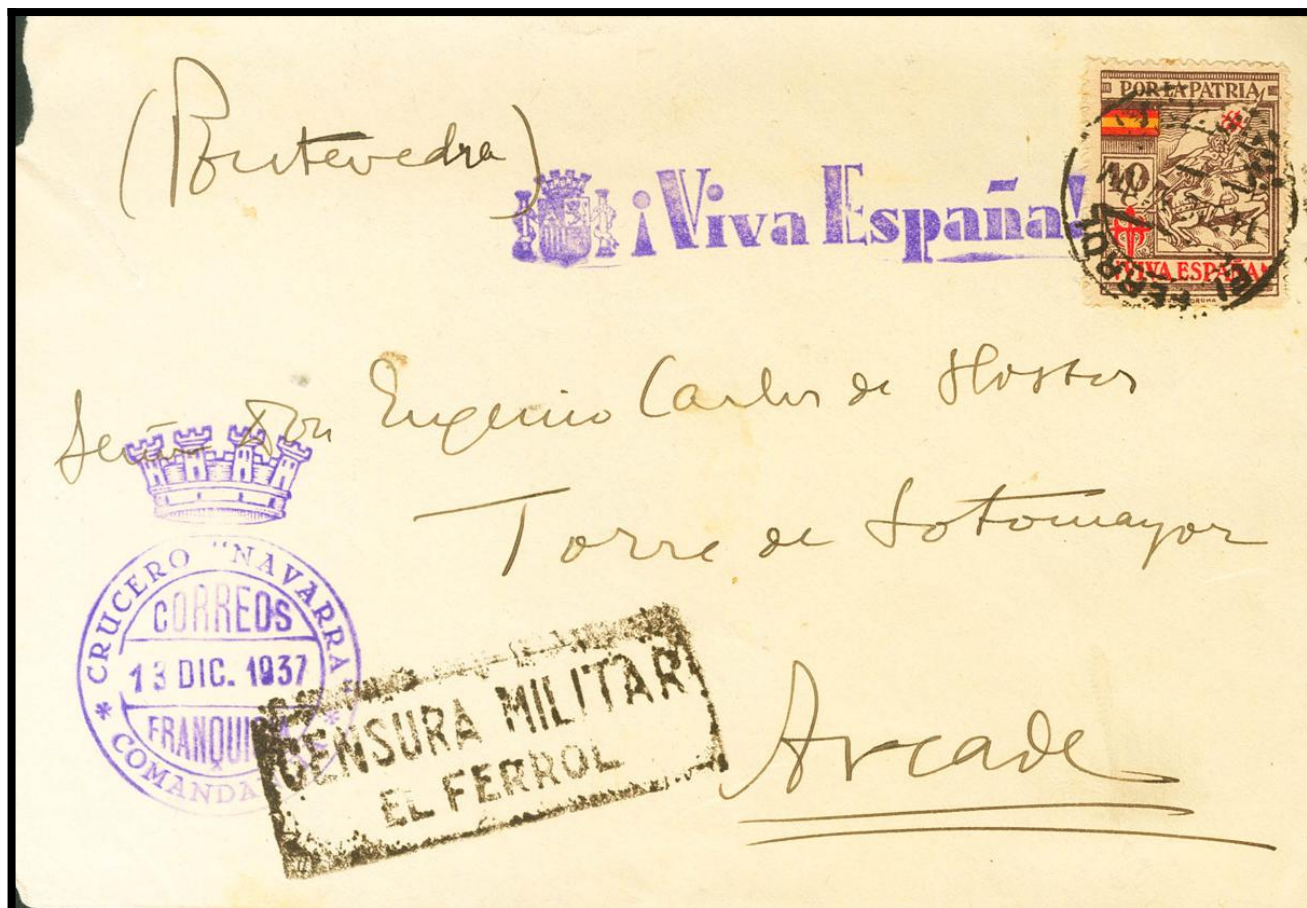 (Pontevedra)
¡Viva España!
POR LA PATRIA
40 C
¡VIVA ESPAÑA!
EL FERROL
Señor Don Eugenio Carlos de Hostos
Torre de Sotomayor
Arcade
CRUCERO "NAVARRA"
CORREOS
13 DIC. 1937
COMANDA
CENSURA MILITAR
EL FERROL